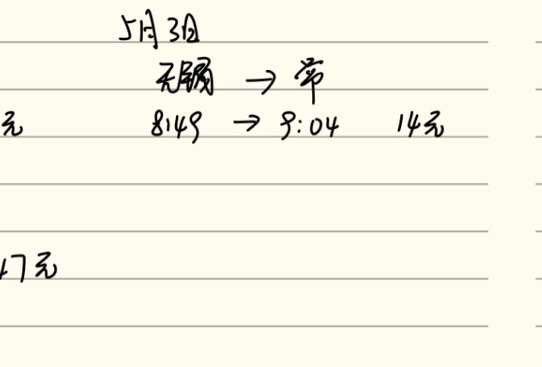 5月3日
无锡 → 常
元 8:49 → 9:04 14元
47元